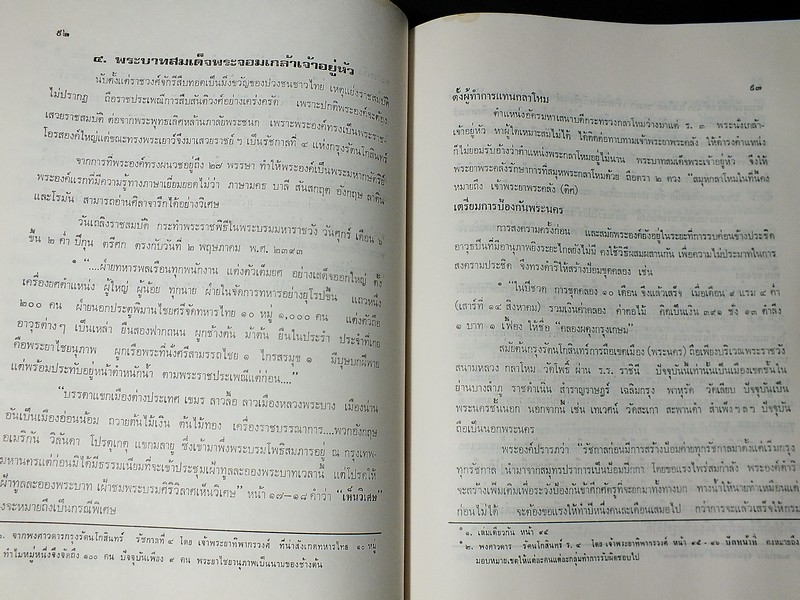 ๕๒
๔. พระบาทสมเด็จพระจอมเกล้าเจ้าอยู่หัว
นับตั้งแต่ราชวงศ์จักรีสืบทอดเป็นมิ่งขวัญของปวงชนชาวไทย เหตุแย่งราชสมบัติ
ไม่ปรากฏ ถือราชประเพณีการสืบสันติวงศ์อย่างเคร่งครัด เพราะปกติพระองค์จะต้อง
เสวยราชสมบัติ ต่อจากพระพุทธเลิศหล้านภาลัยพระชนก เพราะพระองค์ทรงเป็นพระราช-
โอรสองค์ใหญ่แต่ขณะทรงพระเยาว์จึงมาเสวยราชย์ฯ เป็นรัชกาลที่ ๔ แห่งกรุงรัตนโกสินทร์
จากการที่พระองค์ทรงผนวชอยู่ถึง ๒๗ พรรษา ทำให้พระองค์เป็นพระมหากษัตริย์
พระองค์แรกที่มีความรู้ทางภาษาเยี่ยมยอดไม่ว่า ภาษามคธ บาลี สันสกฤต อังกฤษ ลาติน
และโรมัน สามารถอ่านศิลาจารึกได้อย่างวิเศษ
วันเถลิงราชสมบัติ กระทำพระราชพิธีในพระบรมมหาราชวัง วันศุกร์ เดือน ๖
ขึ้น ๒ ค่ำ ปีกุน ตรีศก ตรงกับวันที่ ๒ พฤษภาคม พ.ศ. ๒๓๙๓
๑ “....ฝ่ายทหารพลเรือนทุกพนักงาน แต่งตัวเต็มยศ อย่างเสด็จออกใหญ่ ตั้ง
เครื่องยศตำแหน่ง ผู้ใหญ่ ผู้น้อย ทุกนาย ฝ่ายในจัดการทหารอย่างยุโรปขึ้น แถวหนึ่ง
๒๐๐ คน ฝ่ายนอกประตูพิมานไชยศรีจัดทหารไทย ๑๐ หมู่ ๑,๐๐๐ คน แต่งตัวถือ
อาวุธต่างๆ เป็นเหล่า ยืนสองฟากถนน ผูกช้างต้น ม้าต้น ยืนในประรำ ประจำที่เกย
คือพระยาไชยานุภาพ ผูกเรือพระที่นั่งศรีสามรรถไชย ๑ ไกรสรมุข ๑ มีบุษบกมีพาย
แต่พร้อมประทับอยู่หน้าตำหนักน้ำ ตามพระราชประเพณีแต่ก่อน....”
“บรรดาแขกเมืองต่างประเทศ เขมร ลาวลื้อ ลาวเมืองหลวงพระบาง เมืองน่าน
อันเป็นเมืองอ่อนน้อม ถวายต้นไม้เงิน ต้นไม้ทอง เครื่องราชบรรณาการ....พวกอังกฤษ
อเมริกัน วิลันดา โปรตุเกตุ แขกมลายู ซึ่งเข้ามาพึ่งพระบรมโพธิสมภารอยู่ ณ กรุงเทพ-
มหานครแต่ก่อนมิได้มีธรรมเนียมที่จะเข้าประชุมเฝ้าทูลละอองพระบาทเวลานี้ แต่โปรดให้
เฝ้าทูลละอองพระบาท เฝ้าชมพระบรมศิริวิลาศเห็นวิเศษ” หน้า ๑๗-๑๘ คำว่า “เห็นวิเศษ”
คงจะหมายถึงเป็นกรณีพิเศษ
๑. จากพงศาวดารกรุงรัตนโกสินทร์ รัชกาลที่ ๔ โดย เจ้าพระยาทิพากรวงศ์ ที่น่าสังเกตทหารไทย ๑๐ หมู่
ทำไมหมู่หนึ่งจึงจัดถึง ๑๐๐ คน ปัจจุบันเพียง ๙ คน พระยาไชยานุภาพเป็นนามของช้างต้น
๕๓
ตั้งผู้ทำการแทนกลาโหม
ตำแหน่งอัครมหาเสนาบดีกระทรวงกลาโหมว่างมาแต่ ร. ๓ พระนั่งเกล้า-
เจ้าอยู่หัว หาผู้ใดเหมาะสมไม่ได้ ได้ติดต่อทาบทามเจ้าพระยาพระคลัง ให้ดำรงตำแหน่ง
ก็ไม่ยอมรับอ้างว่าตำแหน่งพระกลาโหมอยู่ไม่นาน พระบาทสมเด็จพระเจ้าอยู่หัว จึงให้
พระยาพระคลังรักษาการที่สมุหพระกลาโหมด้วย ถือตรา ๒ ดวง “สมุหกลาโหมในที่นี้คง
หมายถึง เจ้าพระยาพระคลัง (ดิศ)
เตรียมการป้องกันพระนคร
การสงครามครั้งก่อน และสมัยพระองค์ยังอยู่ในระยะที่การรบค่อนข้างประชิด
อาวุธปืนที่มีอานุภาพยิงระยะไกลยังไม่มี คงใช้วิธีผสมผสานกัน เพื่อความไม่ประมาทในการ
สงครามประชิด จึงทรงดำริให้สร้างป้อมขุดคลอง เช่น
๑ “ในปีชวด การขุดคลอง ๑๐ เดือน จึงแล้วเสร็จ เมื่อเดือน ๙ แรม ๔ ค่ำ
(เสาร์ที่ ๑๔ สิงหาคม) รวมเงินค่าคลอง ค่าตอไม้ คิดเป็นเงิน ๓๙๑ ชั่ง ๑๓ ตำลึง
๑ บาท ๑ เฟื้อง ให้ชื่อ “คลองผดุงกรุงเกษม”
สมัยต้นกรุงรัตนโกสินทร์การถือเขตเมือง (พระนคร) ถือเพียงบริเวณพระราชวัง
สนามหลวง กลาโหม วัดโพธิ์ ผ่าน ร.ร. ราชินี ปัจจุบันนี้เท่านั้นเป็นเมืองเขตชั้นใน
ย่านบางลำภู ราชดำเนิน สำราญราษฎร์ เฉลิมกรุง พาหุรัด วัดเลียบ ปัจจุบันเป็น
พระนครชั้นนอก นอกจากนี้ เช่น เทเวศน์ วัดสะเกา สะพานดำ สำเพ็ง ฯลฯ ปัจจุบัน
ถือเป็นนอกพระนคร
พระองค์ปรารภว่า “รัชกาลก่อนมีการสร้างป้อมค่ายทุกรัชกาลมาตั้งแต่เริ่มกรุง
ทุกรัชกาล นำมาจากสมุทรปราการเป็นป้อมปีกกา โดยขอแรงไพร่สมกำลัง พระองค์ดำริ
จะสร้างเพิ่มเติมเพื่อระวังป้องกันข้าศึกศัตรูที่จะยกมาทั้งทางบก ทางน้ำให้นายทำเหมือนแต่
ก่อนไม่ได้ จะต้องขอแรงให้ทำปีหนึ่งคนละเดือนเสมอไป กว่าการจะแล้วเสร็จให้กรม
๑ ๑. เล่มเดียวกัน หน้า ๙๕
๒. พงศาวดาร รัตนโกสินทร์ ร. ๔ โดย เจ้าพระยาทิพากรวงศ์ หน้า ๙๕ - ๙๖ ปีกหน้าที่ คงหมายถึง
มอบหมายเขตให้แต่ละคนแต่ละกลุ่มทำการรับผิดชอบไป